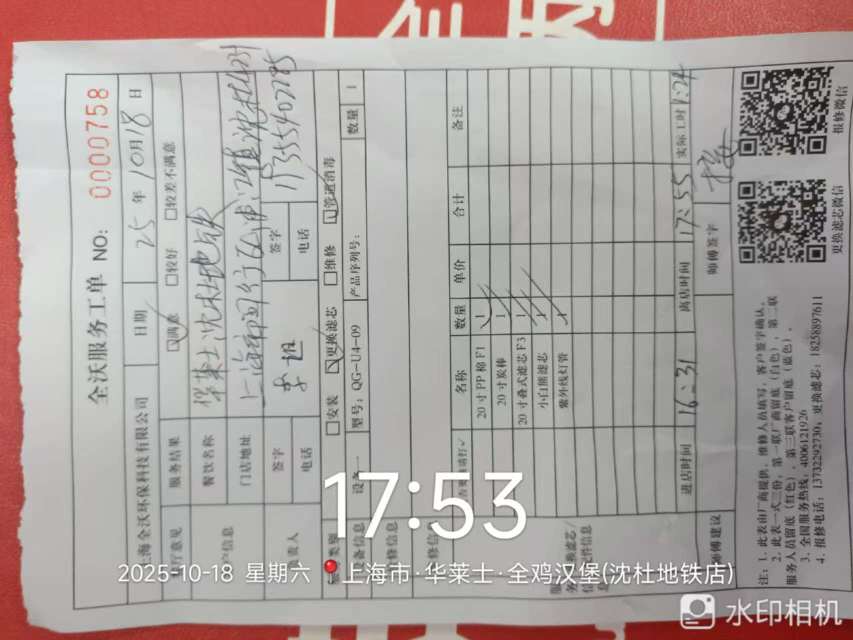 全沃服务工单 NO: 0000758
上海全沃环保科技有限公司 日期 25 年 10月 18 日
客厅意见 服务结果 ☑满意 □较好 □较差不满意
餐饮名称 华莱士沈杜地铁
门店地址 上海市闵行区浦江镇沈杜公
签字 李姐 签字
电话 电话 17355407785
□安装 ☑更换滤芯 □维修 ☑管道消毒
型号: QG-U4-09 产品序列号: 数量 1
名称 数量 单价 合计 备注
20寸PP棉F1 1
20寸炭棒 1
20寸叠式滤芯F3 1
小白熊滤芯 1
紫外线灯管 1
进店时间 16:31 离店时间 17:55 实际工时 1:24
师傅建议 师傅签字
注: 1. 此表由厂商提供, 维修人员填写, 客户签字确认。
2. 此表一式三份: 第一联厂商留底 (白色), 第二联
服务人员留底 (红色), 第三联客户留底 (蓝色)。
3. 全国服务热线: 4006121926
4. 报修电话: 13732292730, 更换滤芯: 18258897611
更换滤芯微信
报修微信
17:53
2025-10-18 星期六 上海市·华莱士·全鸡汉堡(沈杜地铁店)
水印相机